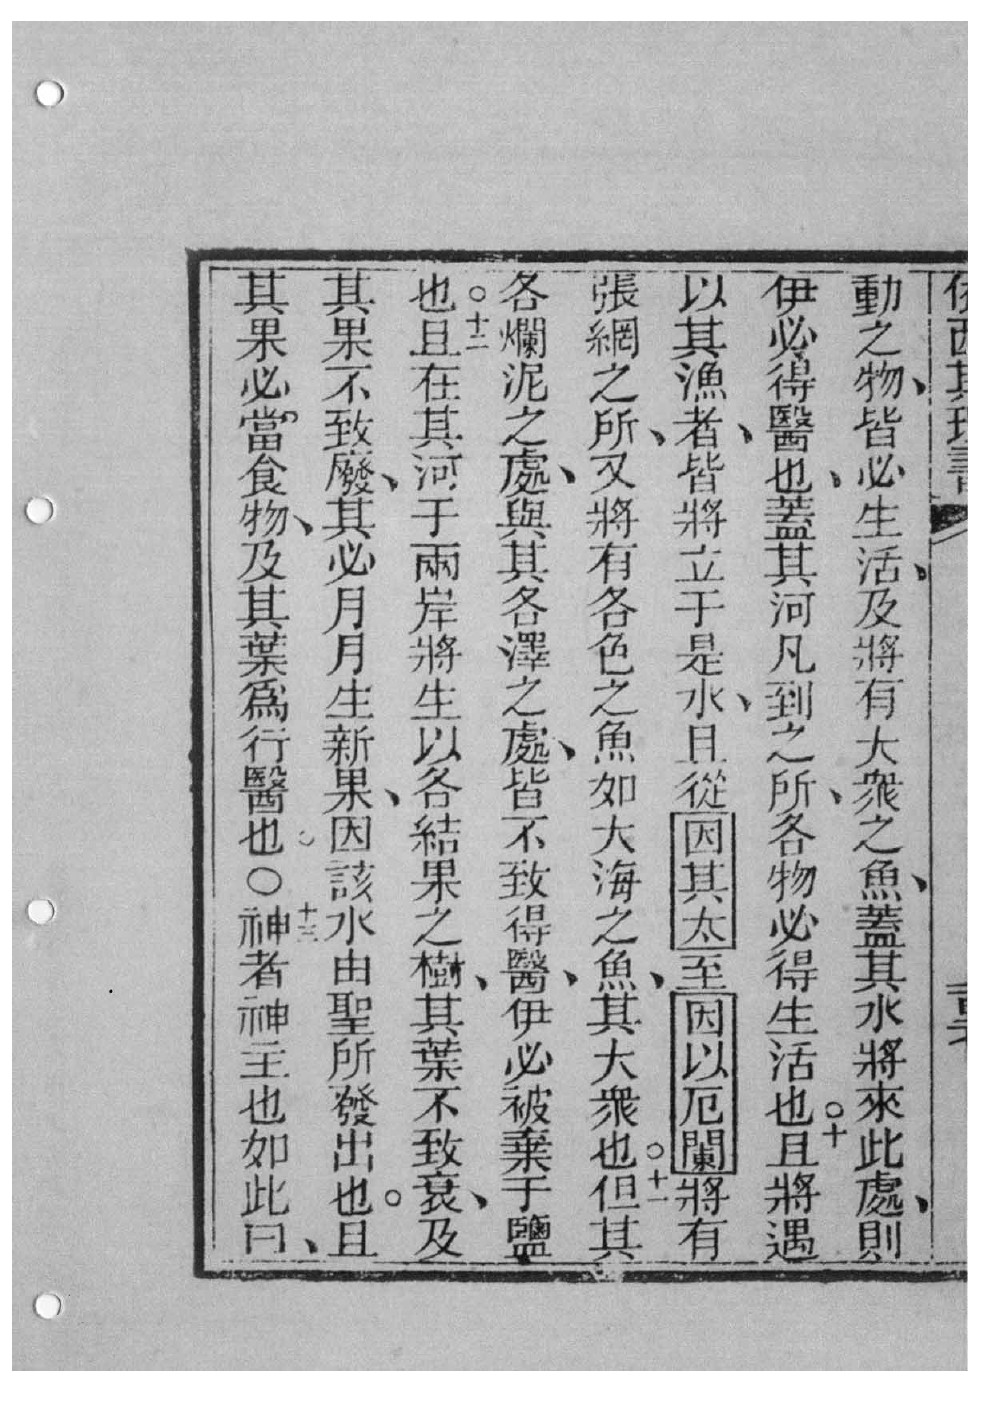 動之物、皆必生活、及將有大衆之魚、蓋其水將來此處、則
伊必得醫也、蓋其河凡到之所、各物必得生活也。十且將遇
以其漁者、皆將立于是水、且從因其太至因以厄闌將有
張網之所、又將有各色之魚如大海之魚、其大衆也。十一但其
各爛泥之處、與其各澤之處、皆不致得醫、伊必被棄于鹽
也。十二且在其河于兩岸將生以各結果之樹、其葉不致衰、及
其果不致廢、其必月月生新果、因該水由聖所發出也。且
其果必當食物、及其葉爲行醫也。〇十三神者神主也如此曰、